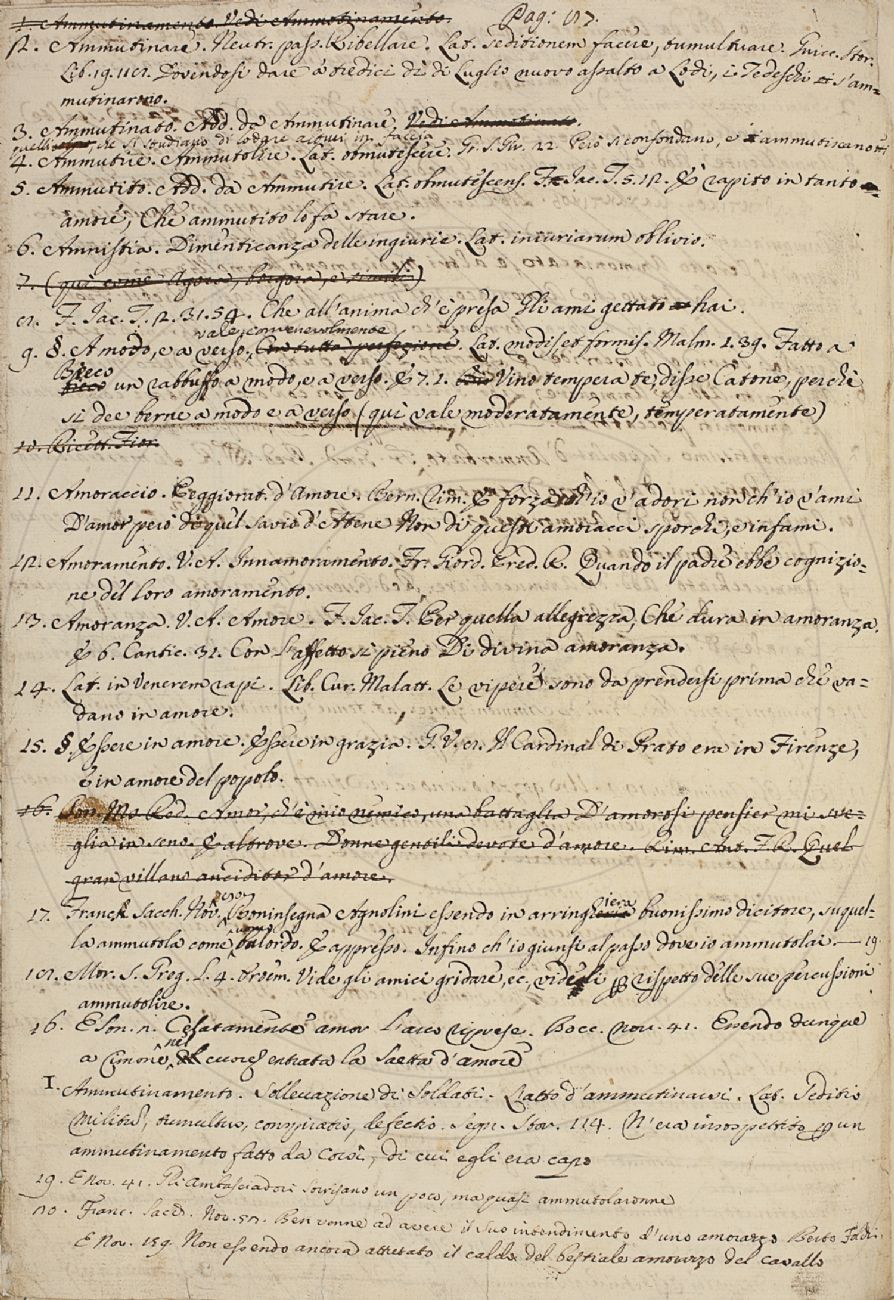 1. Ammutinamento. Vedi Ammotinamento. Pag: 87.
2. Ammutinare. Neutr. pass. Ribellare. Lat. seditionem facere, tumultuare. Guicc. Stor.
Lib. 19. Dovendosi dare a' tredici dì di Luglio nuovo assalto a Lodi, i Tedeschi s'am=
mutinarono.
3. Ammutinato. Add. da Ammutinare, Vedi Ammotinato.
quelli che si studiano di lodare alcuni in faccia
4. Ammutire. Ammutolire. Lat. obmutescere. Gr. S. Gir. 22. Però si confondano, e ammutiscano
5. Ammutito. Add. da Ammutire. Lat. obmutescens. Fr. Jac. T. 5. 12. È rapito in tanto
amore, Che ammutito lo fa stare.
6. Amnistia. Dimenticanza delle ingiurie. Lat. iniuriarum oblivio.
7. (qui come Agora, borgora, e simili)
8. F. Jac. T. 2. 31. 54. Che all'anima ch'è presa Gli ami gettati hai.
vale, convenevolmente
9. §. A modo, e a verso, Con tutta perfezione. Lat. modis, et formis. Malm. 1. 39. Fatto a
Bieco
un rabbuffo a modo, e a verso. E 7. 1. Vino temperate, disse Catone, perchè
si dee berne a modo e a verso (qui vale moderatamente, temperatamente)
10. Ricett. Fior.
11. Amoraccio. Peggiorat. d'Amore. Bern. Rim. È forza ch'io v'adori non ch'io v'ami
D'amor però di quel savio d'Atene Non di questi amoracci sporchi, e infami.
12. Amoramento. V. A. Innamoramento. Fr. Giord. Pred. R. Quando il padre ebbe cognizio=
ne del loro amoramento.
13. Amoranza. V. A. Amore. F. Jac. T. Per quella allegrezza, Che dura in amoranza.
E 6. Cantic. 31. Con l'affetto sì pieno Di divina amoranza.
14. Lat. in Venerem rapi. Lib. Cur. Malatt. Le vipere sono da prendersi prima che va=
dano in amore.
15. §. Essere in amore. Essere in grazia. G. V. 8. Il Cardinal di Prato era in Firenze,
e in amore del popolo.
16. Son. Mo Red. Amor, ch'è mio nemico, una battaglia D'amorosi pensier mi sve=
glia in seno. E altrove. Donne gentili devote d'amore. Rim. Ant. F. R. Quel
gran villano anciditor d'amore.
17. Franch. Sacch. Nov. Boninsegna Agnolini essendo in arringhiera buonissimo dicitore, su quel=
la ammutola come balordo. E appresso. Infino ch'io giunsi al passo dove io ammutolai. — 19.
18. Mor. S. Greg. L. 4. Proem. Vide gli amici gridare, ec. videgli rispetto delle sue percussioni
ammutolire.
16. E Son. 2. Celatamente amor l'arco riprese. Bocc. nov. 41. Essendo dunque
nel
a Cimone, cuore entrata la saetta d'amore
1. Ammutinamento. Sollevazione di Soldati. L'atto d'ammutinarsi. Lat. Seditio
Militum, tumultus, conspiratio, defectio. Segr. Stor. 114. N'era insospettito un
ammutinamento fatto da Corsi, di cui egli era capo
19. E Nov. 41. Gli ambasciadori sorrisono un poco, ma quasi ammutolarono
20. Franc. Sacch. Nov. 52. Ben venne ad avere il suo intendimento d'uno amorazzo Berto Folchi.
E Nov. 159. Non essendo ancora attutato il caldo del bestiale amorazzo del cavallo